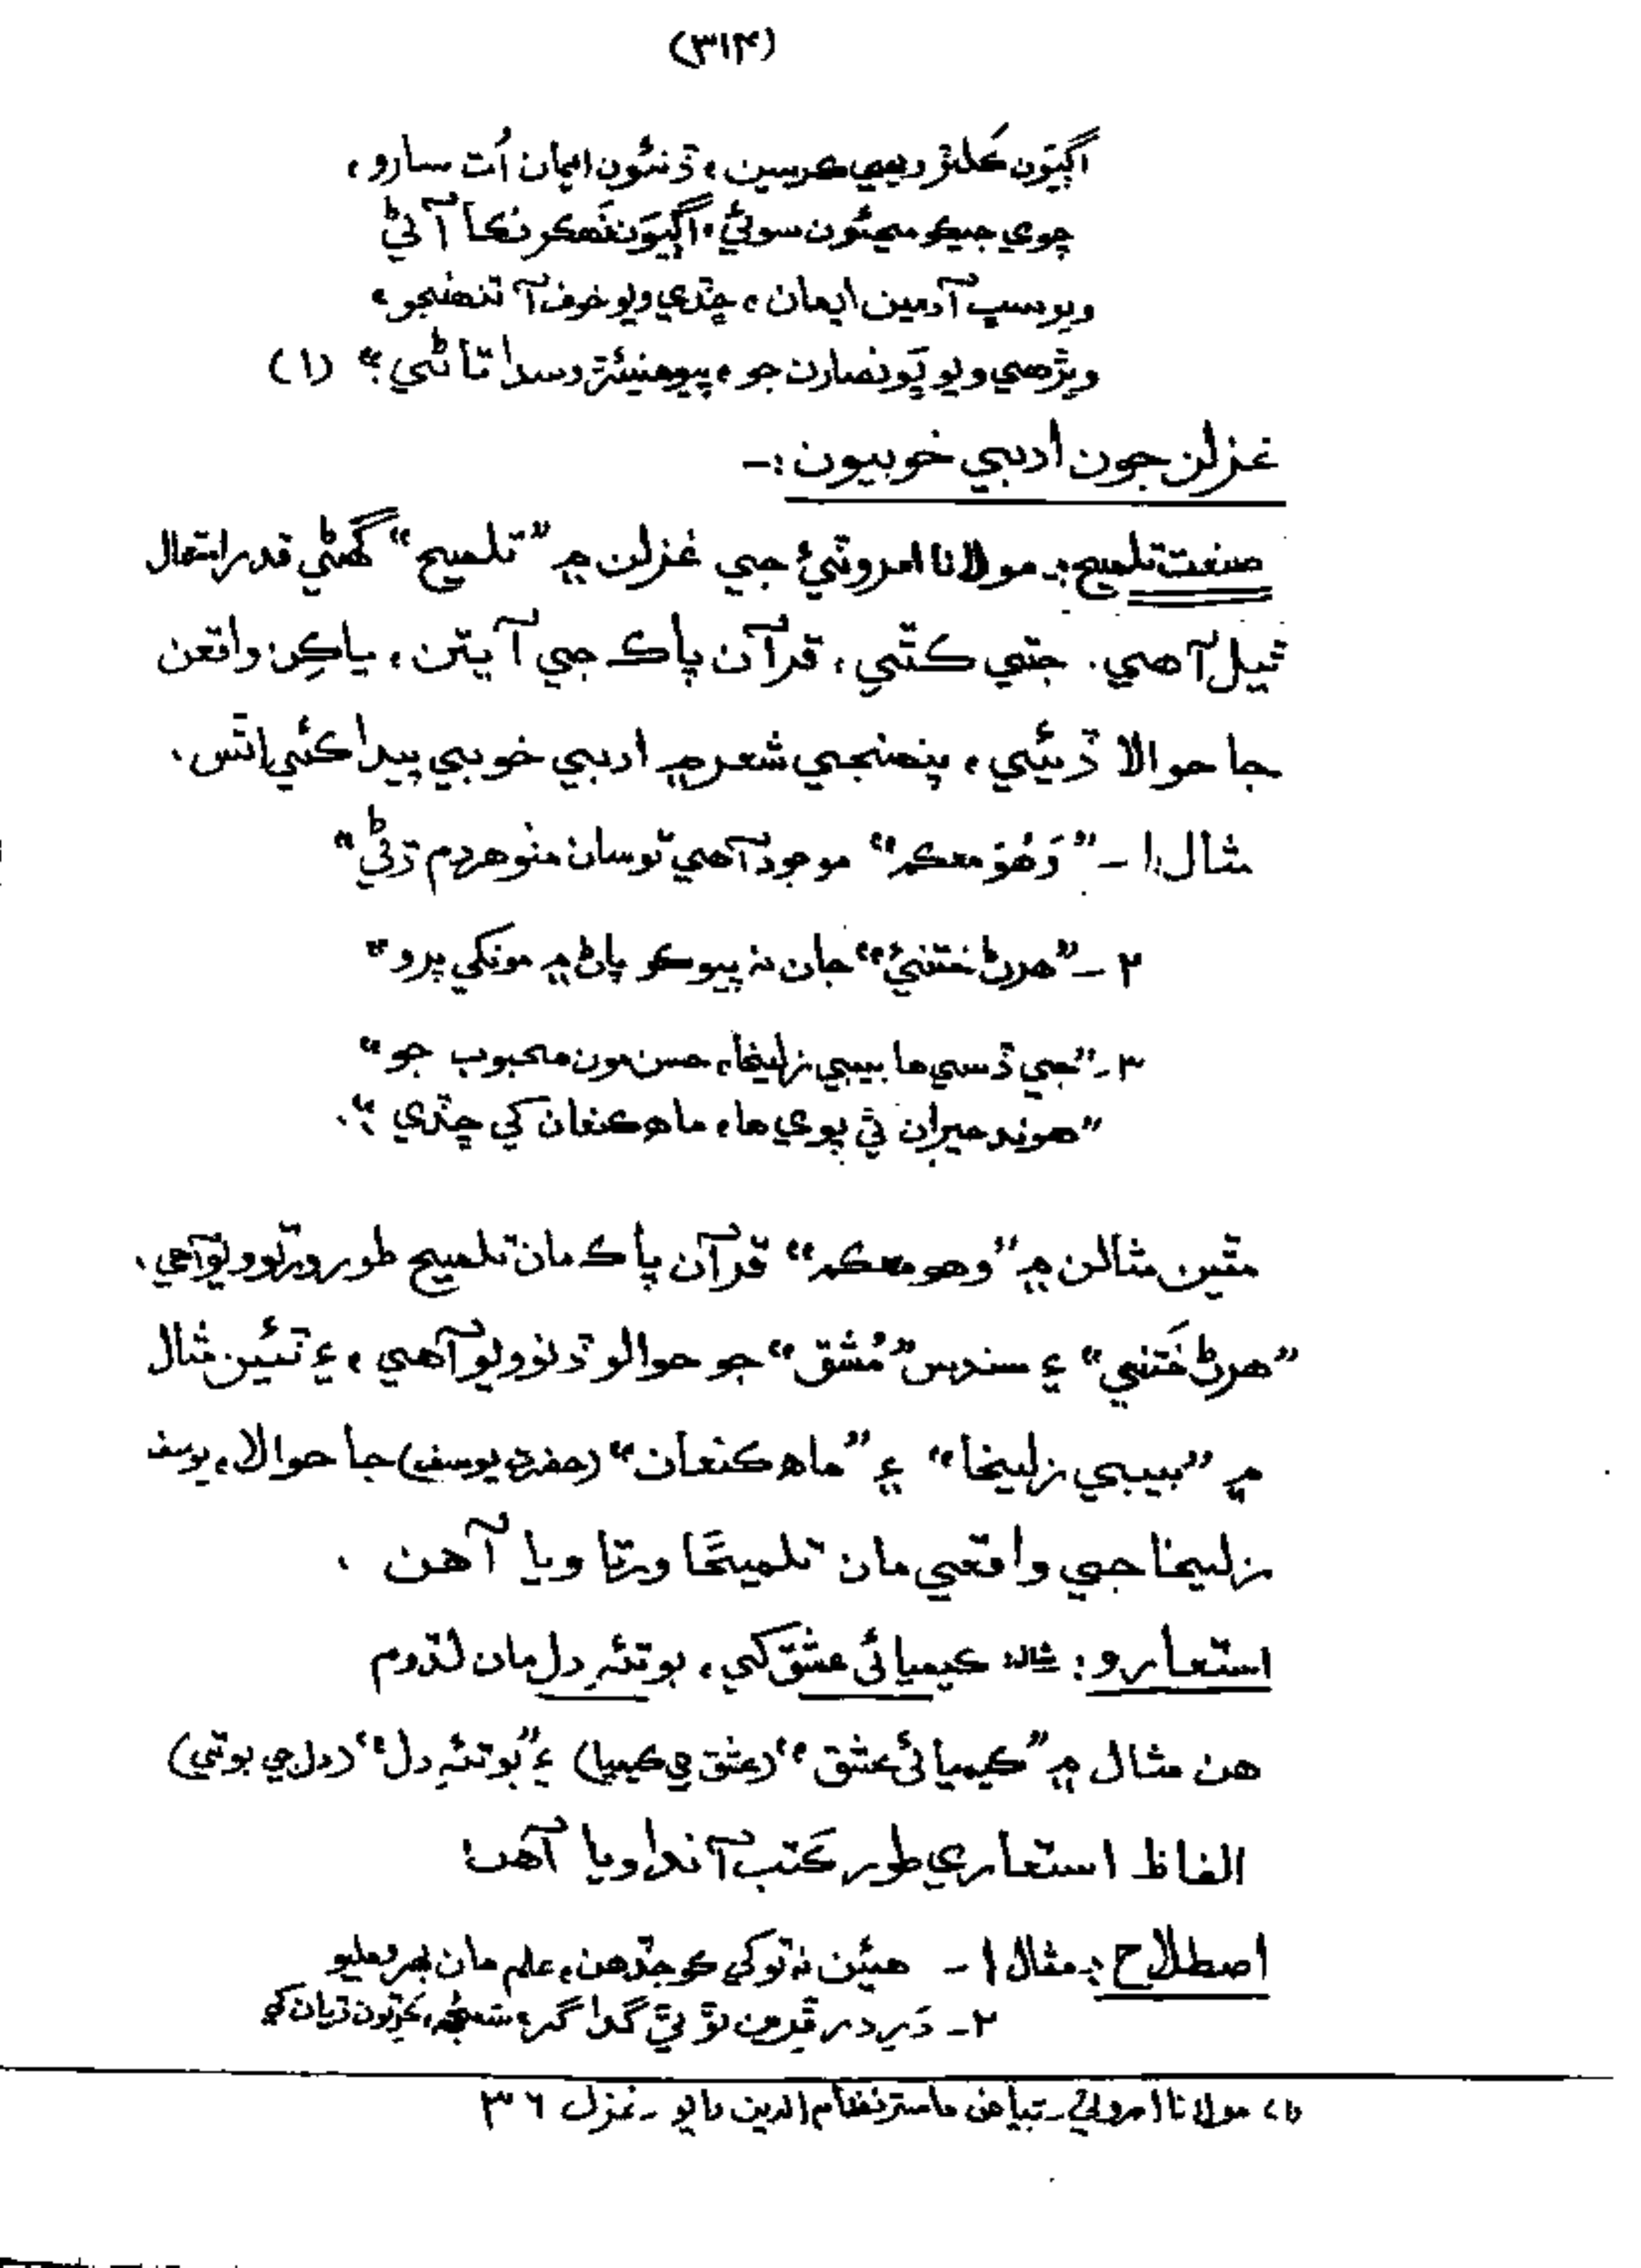 (۳۱۴)
اڳيون ڪلٽر ويهي ڪرسين، ڏنئون ايمان اُت سارو،
چوي جيڪو مڃئون سوئي، اڳيون ڦڪر نڪا آئي
ويو سڀ آدمين ايمان، ڇڏي ويو خوف آ تنهنجو،
ويڙهي ويو پَو نصارن جو، سدا تائي؛ (۱)
غزلن جون ادبي خوبيون :ـ
صنعت تلميح :ـ مولانا امروٽيءَ جي غزلن ۾ ”تلميح“ گهڻي قدر استعمال
ٿيل آهي. جتي ڪٿي، قرآن پاڪ جي آيتن، يا ڪِن واقعن
جا حوالا ڏيئي، پنهنجي شعر ۾ ادبي خوبي پيدا ڪئي اٿس.
مثال: ۱ـ ”وَهُوَ معڪم“ موجود آهي توسان منو هردم ڌڻي“
۲ـ ”هرڻ ختنيءَ“ جان نہ پيو ڪو پاڻ ۾ مونکي پرو“
۳ـ ”جي ڏسي ها بيبي زليخا، حسن مون محبوب جو“
”هوند حيران ٿي پوي ها، ماھ ڪنعان کي ڇڏي“.
مٿين مثالن ۾ ”وهو معڪم“ قرآن پاڪ مان تلميح طور ورتو ويو آهي.
”هرڻ خَتني“ ۽ سندس ”مُشڪ“ جو حوالو ڏنو ويو آهي، ۽ ٽئين مثال
۾ ”بيبي زليخا“ ۽ ”ماھ ڪنعان“ (حضرت يوسف) جا حوالا، يوسف
زليخا جي واقعي مان تلميحًا ورتا ويا آهن .
استعارو : مثال: ڪيميائي عشق کي، بوتئہ دل مان لڌوم
هن مثال ۾ ”ڪيميائي عشق“ (عشق جي ڪيميا) ۽ ”بوتئہ دل“ (دل جي بوتي)
الفاظ استعاري طور ڪَتب آندا ويا آهن
اصطلاح :ـ مثال ۱ـ هيئن نہ توکي ڪو جڏهن، علم مان ڀلو
۲ـ دَر در ڦرين ٿو ٿي گداگر،
(۱) مولانا امروٽي ـ بياض ماستر نظام الدين ـ غزل ۳٦